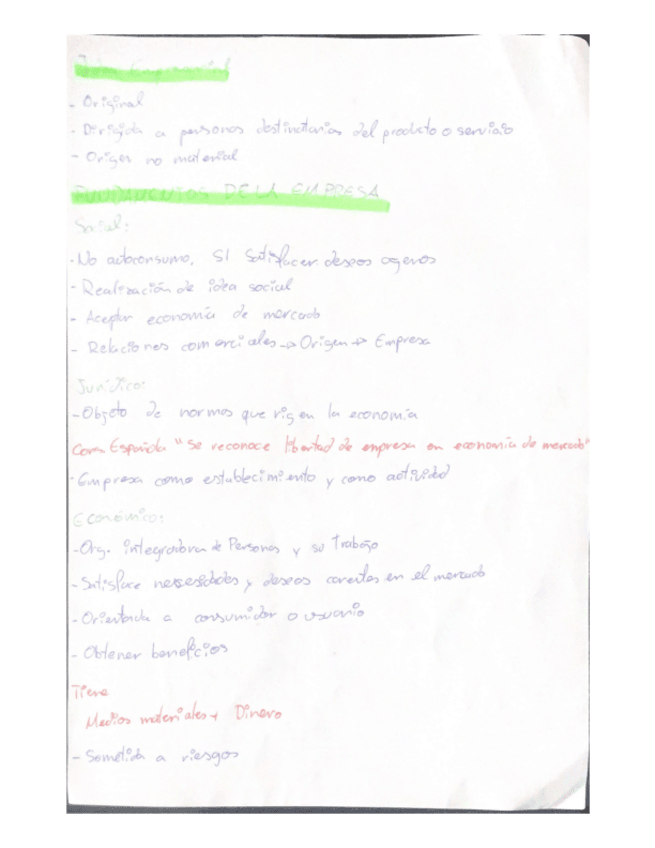 Idea Empresarial
- Original
- Dirigida a personas destinatarias del producto o servicio
- Origen no material
FUNDAMENTOS DE LA EMPRESA
Social:
- No autoconsumo, SI satisfacer deseos agenos
- Realización de idea social
- Aceptar economía de mercado
- Relaciones comerciales → Origen → Empresa
Jurídico:
- Objeto de normas que rigen la economía
Española "se reconoce libertad de empresa en economía de mercado"
- Empresa como establecimiento y como actividad
Económico:
- Org. integradora de Personas y su Trabajo
- Satisface necesidades y deseos en el mercado
- Orientada a consumidor o usuario
- Obtener beneficios
Tiene
Medios materiales + Dinero
- Sometida a riesgos